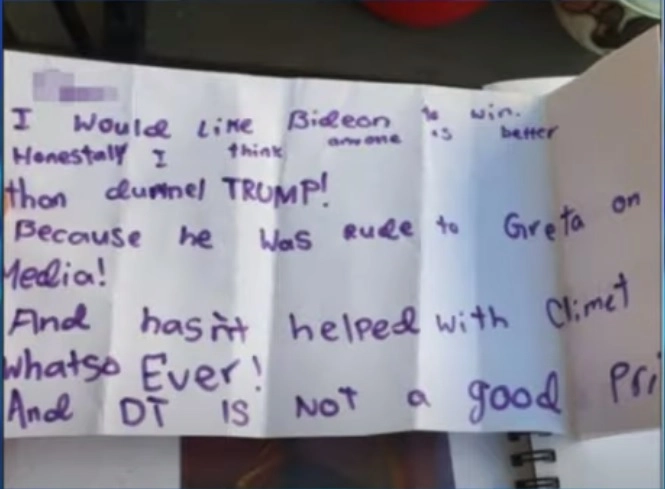 I Would Like Bideon to win.
Honestally I think anyone is better
than dunnel TRUMP!
Because he was Rude to Greta on
Media!
And hasn't helped with Climet
whatso Ever!
And DT IS NOT a good Pri